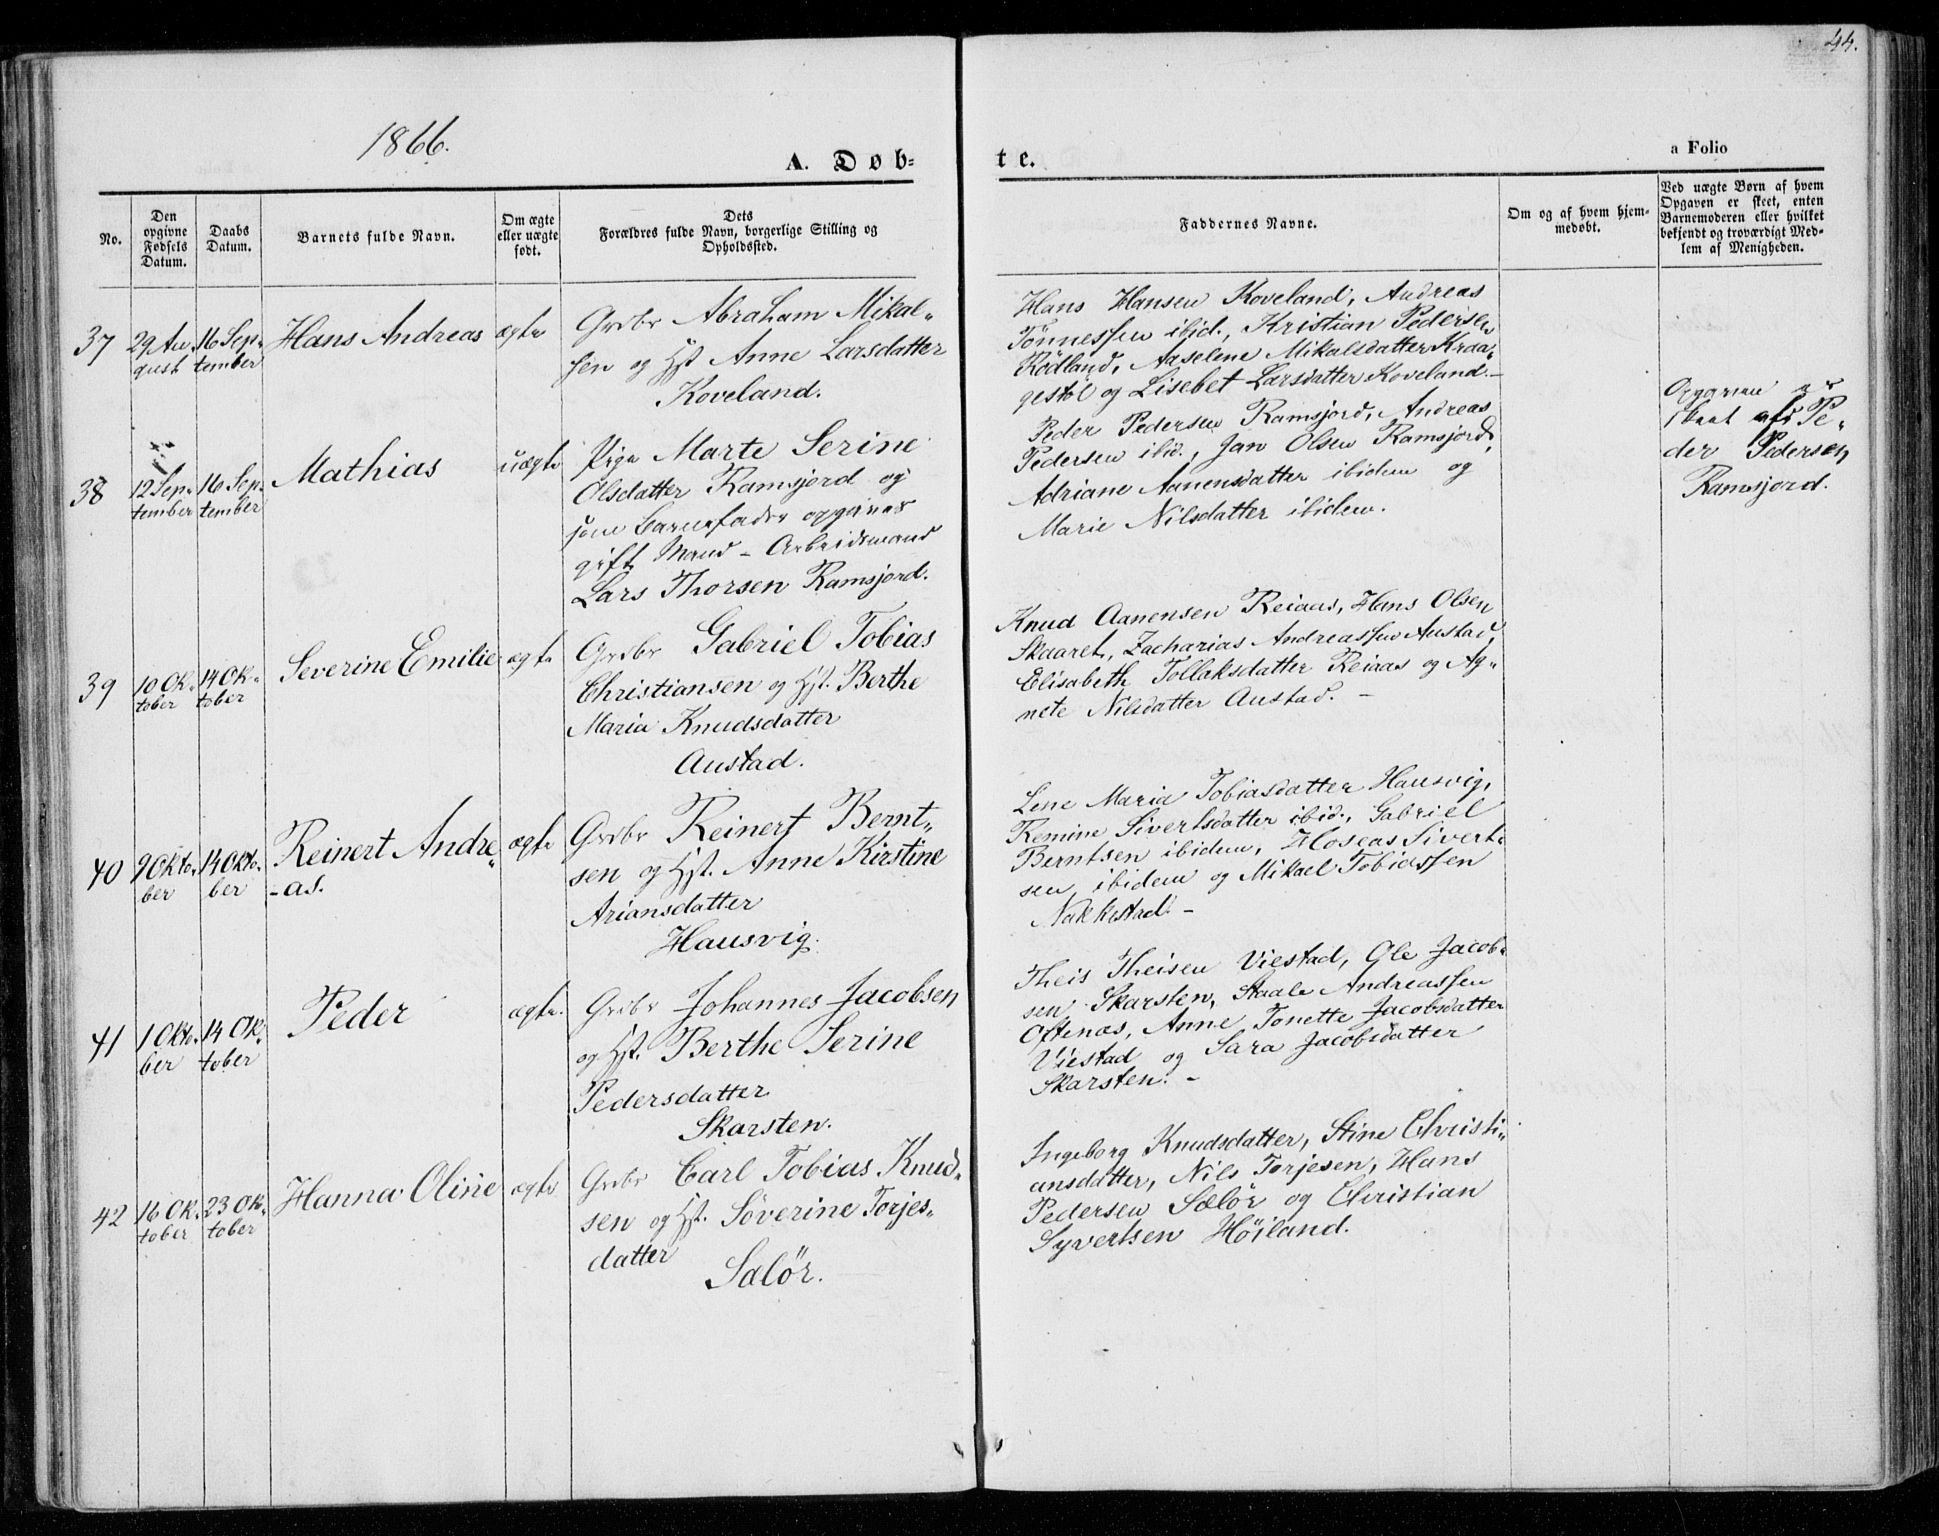 44.
1866.
A. Døb-
te.
a Folio
No.
Den
opgivne
Fødsels
Datum.
Daabs
Datum.
Barnets fulde Navn.
Om ægte
eller uægte
født.
Dets
Forældres fulde Navn, borgerlige Stilling og
Opholdssted.
Faddernes Navne.
Om og af hvem hjem-
medøbt.
Ved uægte Børn af hvem
Opgaven er skeet, enten
Barnemoderen eller hvilket
bekjendt og troværdigt Med-
lem af Menigheden.
37
29 Au-
gust
16 Sep-
tember
Hans Andreas
ægte
Grdbr Abraham Mikal-
sen og Hst Anne Larsdatter
Koveland.
Hans Hansen Koveland, Andreas
Tönnessen ibid., Kristian Pedersen
Rödland, Aaselene Mikalsdatter Kraa-
gestöl og Lisebet Larsdatter Koveland.-
38
12 Sep-
tember
16 Sep-
tember
Mathias
uægte
Pige Marte Serine
Olsdatter Ramsjord og
som Barnefader opgives
gift Mand - Arbeidsmand
Lars Thorsen Ramsjord.
Peder Pedersen Ramsjord, Andreas
Pedersen ibid., Jan Olsen Ramsjord,
Adriane Aanensdatter ibidem og
Marie Nilsdatter ibidem.
Opgaven er
skeet af Pe-
der Pedersen
Ramsjord.
39
10 Ok-
tober
14 Ok-
tober
Severine Emilie
ægte
Grdbr Gabriel Tobias
Christiansen og Hst. Berthe
Maria Knudsdatter
Austad.
Knud Aanensen Reiaas, Hans Olsen
Skaaret, Zacharias Andreassen Austad,
Elisabeth Tollaksdatter Reiaas og Ag-
nete Nilsdatter Austad. -
40
9 Okto-
ber
14 Okto-
ber
Reinert Andre-
-as.
ægte
Grdbr Reinert Bernt-
sen og Hst. Anne Kirstine
Ariansdatter
Hausvig.
Lene Maria Tobiasdatter Hausvig,
Remine Sivertsdatter ibid., Gabriel
Berntsen ibidem, Hoseas Sivert-
sen ibidem og Mikael Tobiassen
Nakkestad. -
41
1 Okto-
ber
14 Ok-
tober
Peder
ægte.
Grdbr Johannes Jacobsen
og Hst. Berthe Serine
Pedersdatter
Skarsten.
Theis Theisen Viestad, Ole Jacob-
sen Skarsten, Staale Andreassen
Oftenæs, Anne Tonette Jacobsdatter
Viestad og Sara Jacobsdatter
Skarsten. -
42
16 Ok-
tober
23 Ok-
tober
Hanna Oline
ægte
Grdbr Carl Tobias Knud-
sen og Hst. Söverine Torjes-
datter
Salör.
Ingeborg Knudsdatter, Stine Christi-
ansdatter, Nils Torjesen, Hans
Pedersen Sælör og Christian
Syvertsen Höiland.